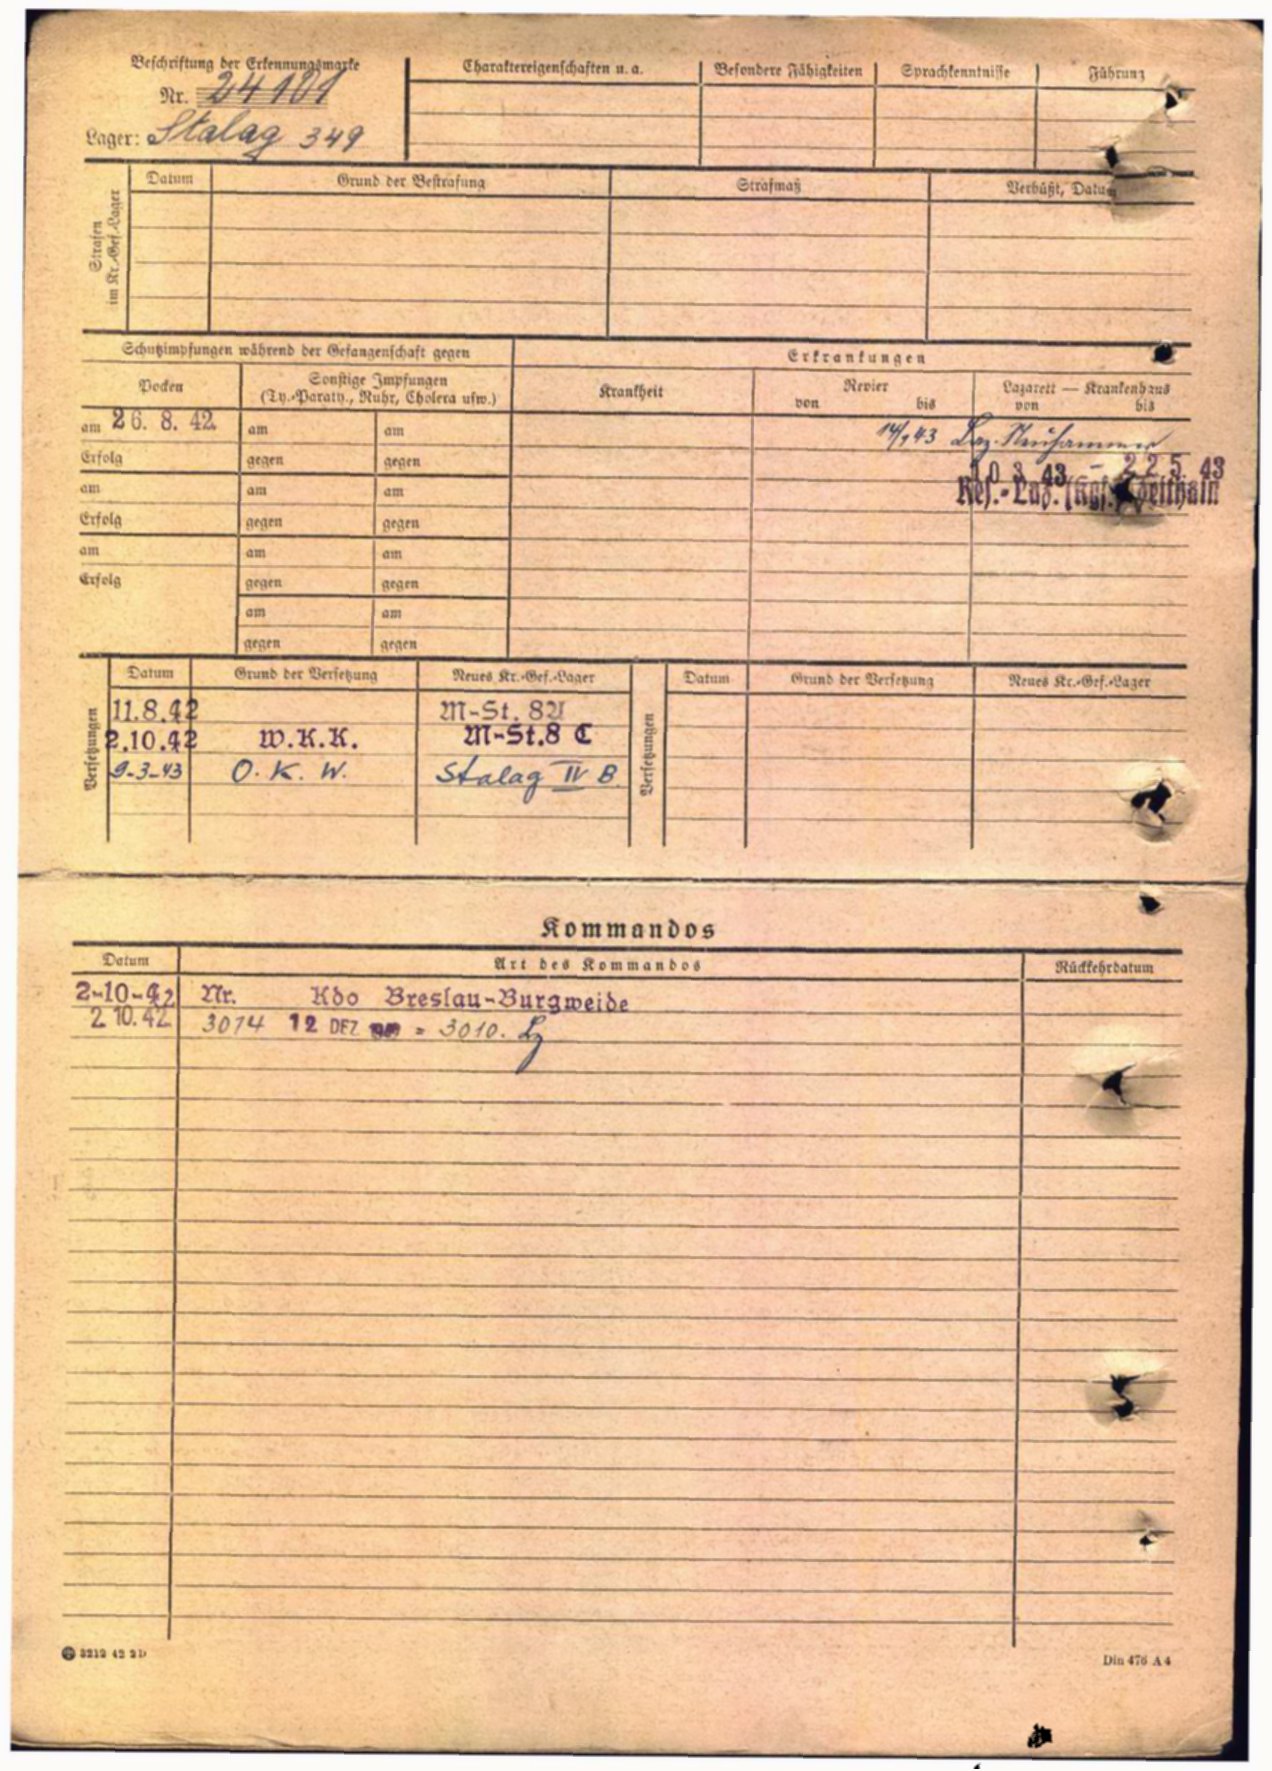 Beschriftung der Erkennungsmarke
Nr. 24101
Lager: Stalag 349
Charaktereigenschaften u. a.
Besondere Fähigkeiten
Sprachkenntnisse
Führung
Strafen im Kr.-Gef.-Lager
Datum
Grund der Bestrafung
Strafmaß
Verbüßt, Datum
Schutzimpfungen während der Gefangenschaft gegen
Erkrankungen
Pocken
Sonstige Impfungen
(Ty.-Paraty., Ruhr, Cholera usw.)
Krankheit
Revier
von bis
Lazarett — Krankenhaus
von bis
am 26. 8. 42 am am
14/1 43 Laz. Neuhammer
Erfolg gegen gegen
10 3 43 - 22 5. 43
am am am
Res.-Laz. (Kgf.) Zeithain
Erfolg gegen gegen
am am am
Erfolg gegen gegen
am am
gegen gegen
Versetzungen
Datum Grund der Versetzung Neues Kr.-Gef.-Lager
11.8.42 M-St. 8A
2.10.42 W.K.K. M-St.8 C
9-3-43 O. K. W. Stalag IV B
Versetzungen
Datum Grund der Versetzung Neues Kr.-Gef.-Lager
Kommandos
Datum Art des Kommandos Rückkehrdatum
2-10-42 Nr. Kdo Breslau-Burgweide
2 10. 42 3014 12 DEZ = 3010.
3212 42 2D
Din 476 A 4